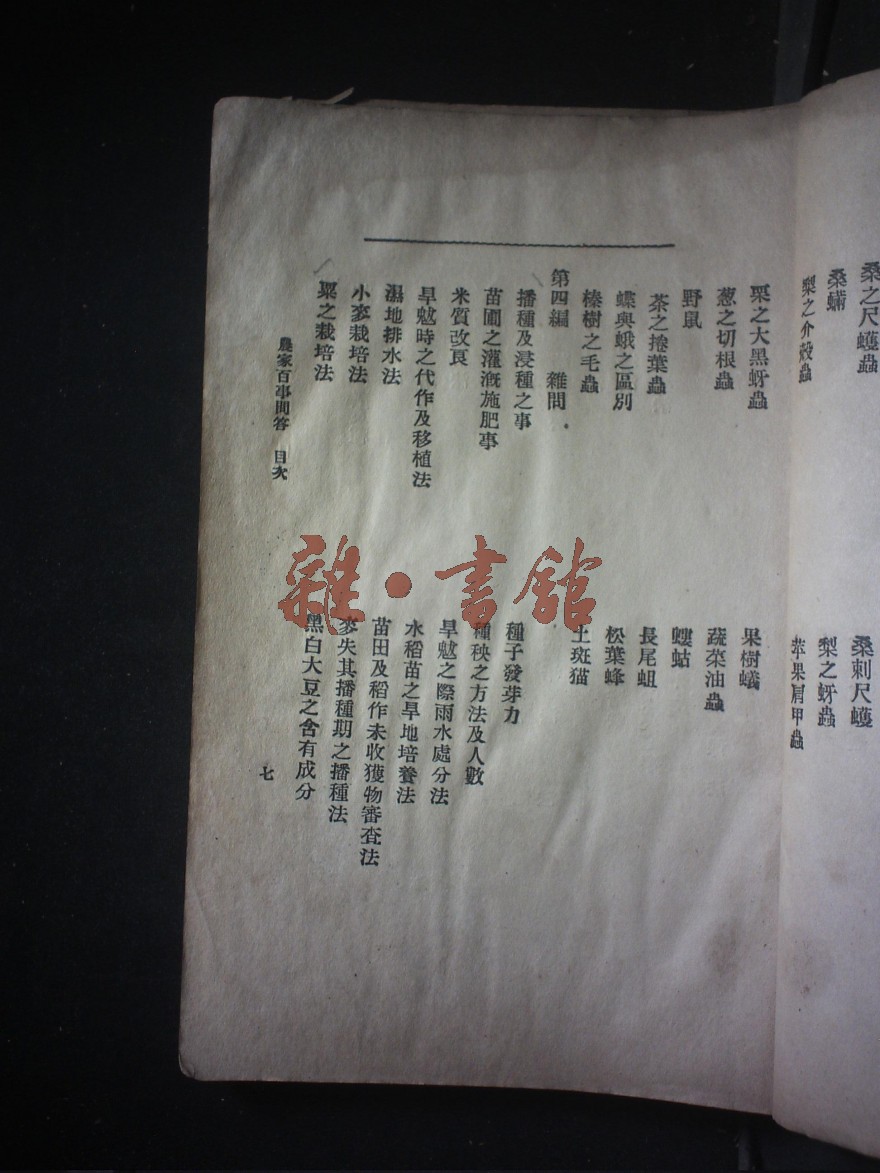 桑之尺蠖蟲
桑刺尺蠖
桑蟎
梨之蚜蟲
梨之介殼蟲
苹果肩甲蟲
栗之大黑蚜蟲
果樹蟻
葱之切根蟲
蔬菜油蟲
野鼠
螻蛄
茶之捲葉蟲
長尾蛆
蝶與蛾之區別
松葉蜂
榛樹之毛蟲
土斑猫
第四編 雜問
播種及浸種之事
種子發芽力
苗圃之灌漑施肥事
種秧之方法及人數
米質改良
旱魃之際雨水處分法
旱魃時之代作及移植法
水稻苗之旱地培養法
濕地排水法
苗田及稻作未收獲物審査法
小麥栽培法
麥失其播種期之播種法
粟之栽培法
黑白大豆之含有成分
農家百事問答 目次
七
雜·書館